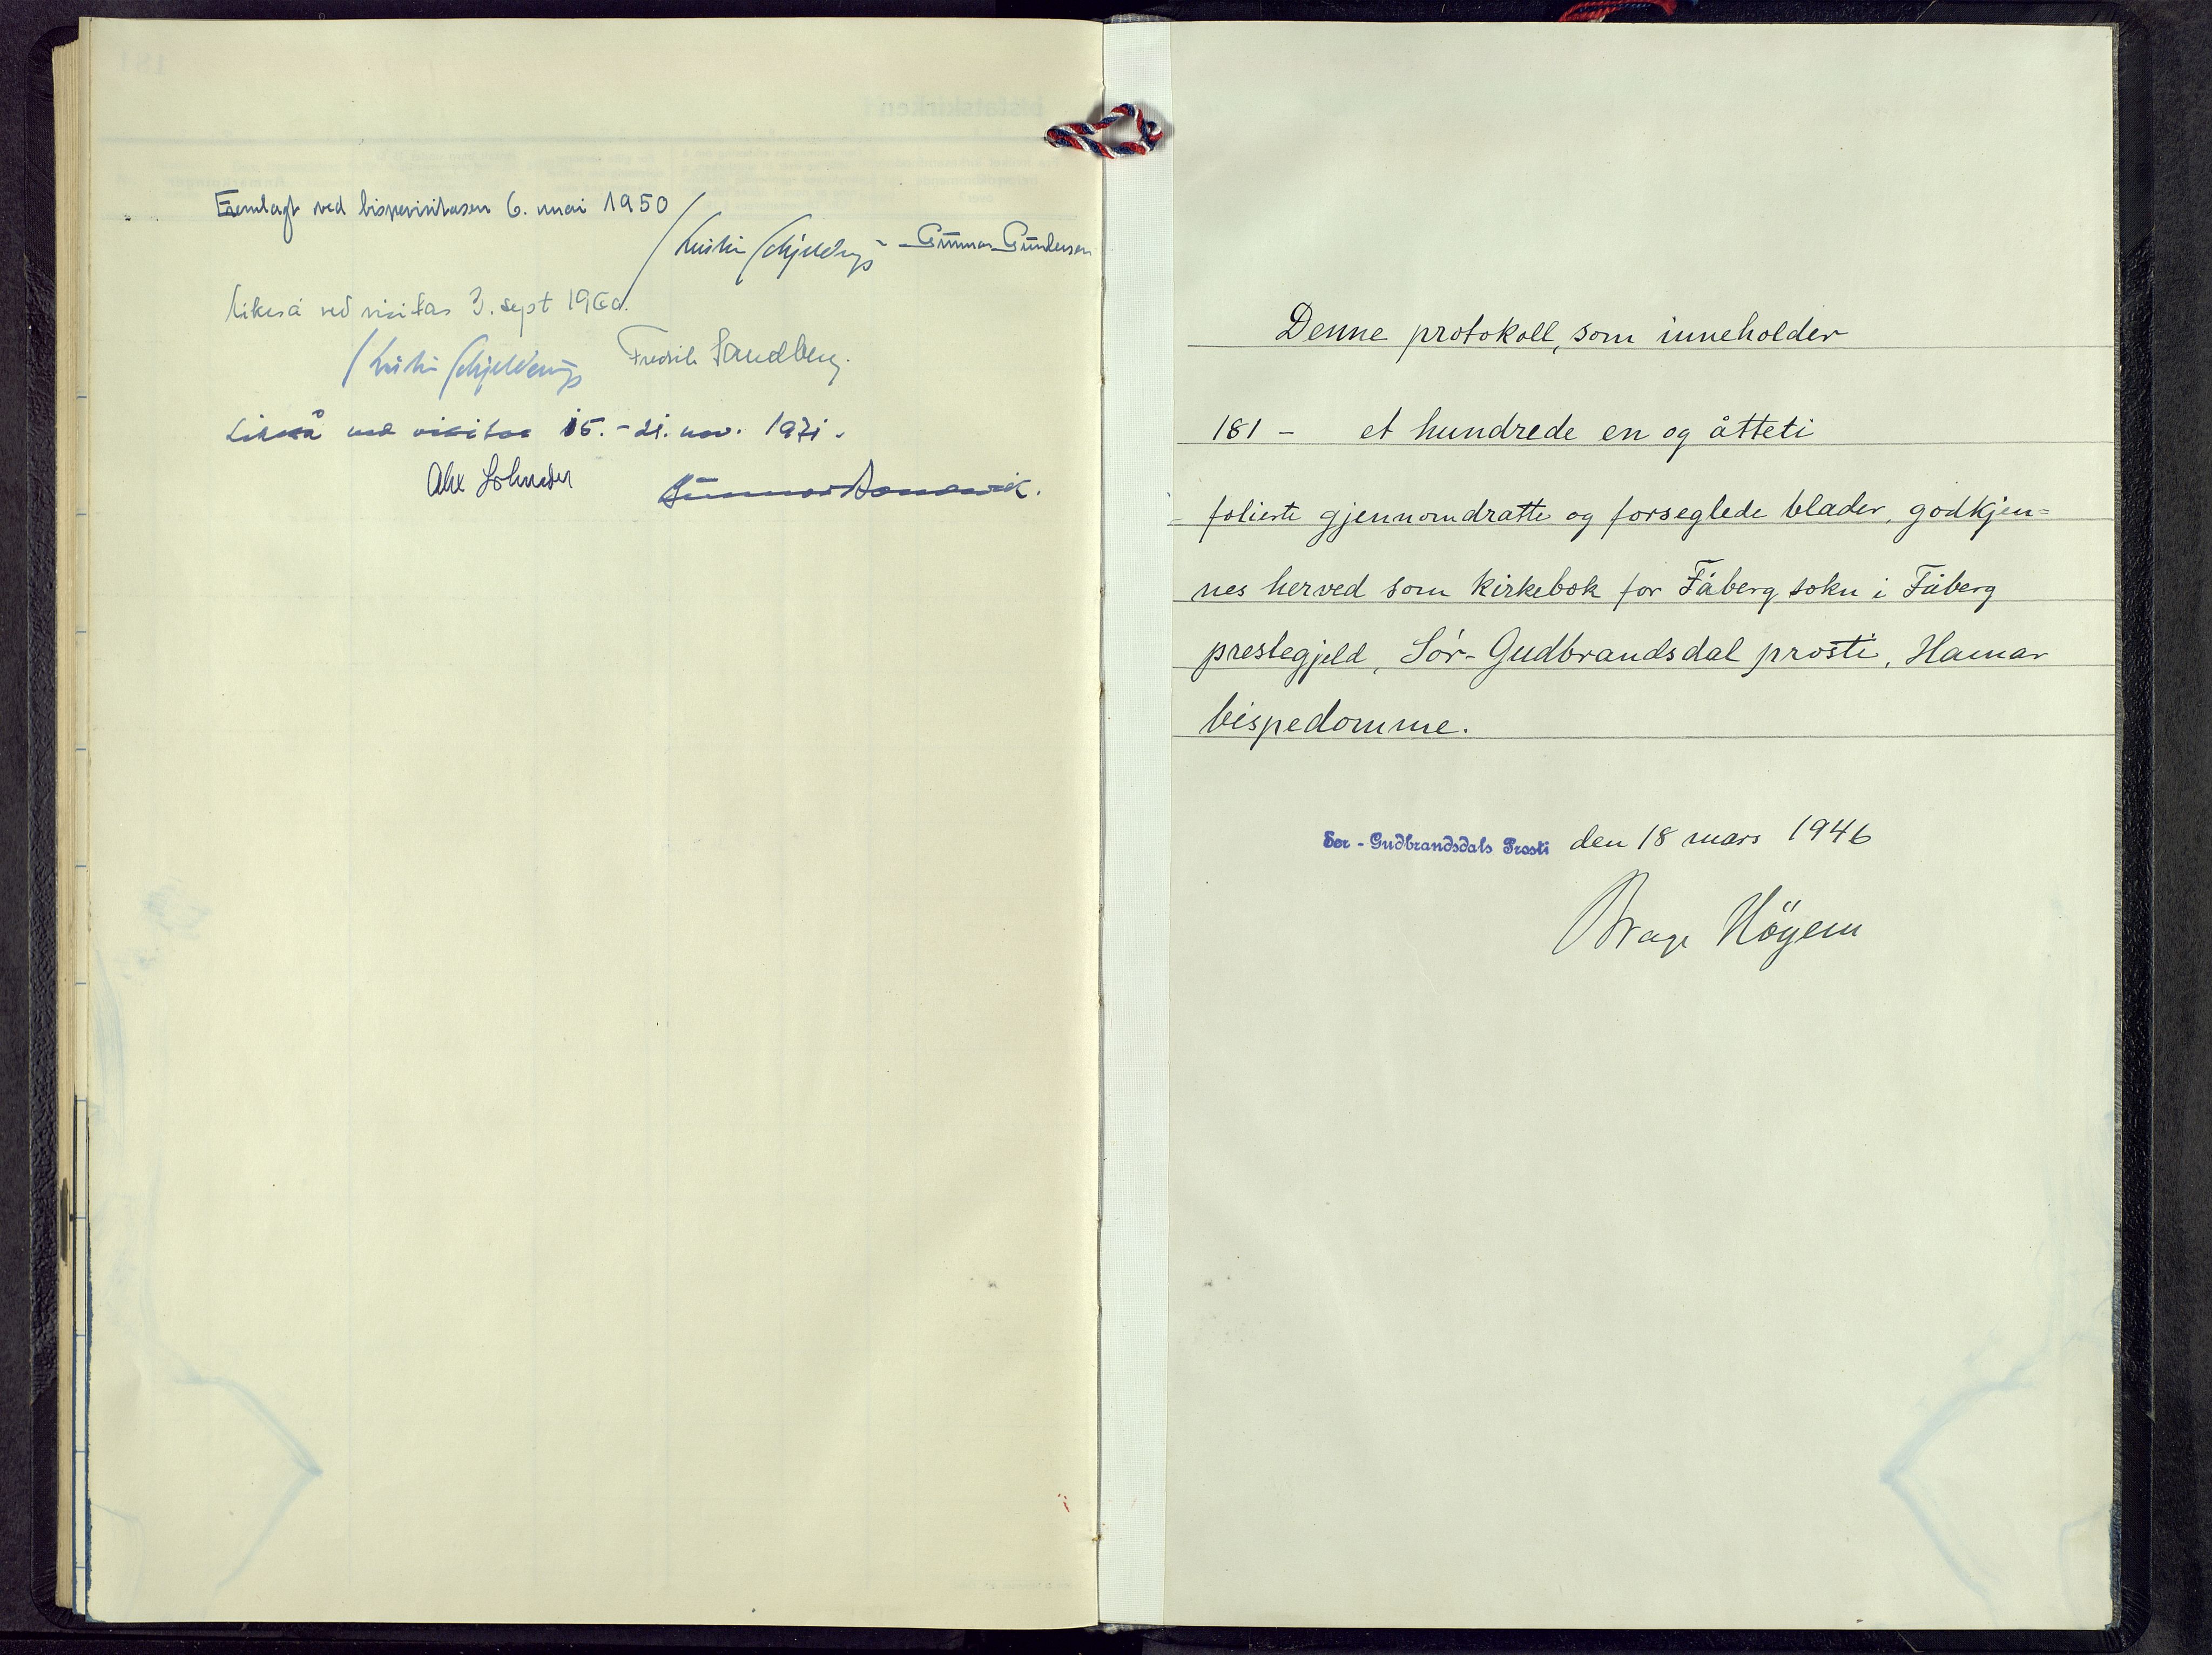 Fremlagt ved bispevisitasen 6. mai 1950
Kristian Schjelderup - Gunnar Gundersen
Likeså ved visitas 3. sept 1960.
Kristian Schjelderup Fredrik Sandberg.
Likeså ved visitas 15. - 21. nov. 1971.
Alex Johnson Gunnar
Denne protokoll, som inneholder
181 - et hundrede en og åtteti
folierte gjennomdratte og forseglede blader, godkjen=
nes herved som kirkebok for Fåberg sokn i Fåberg
prestegjeld, Sør-Gudbrandsdal prosti, Hamar
bispedømme.
Sør - Gudbrandsdals Prosti den 18 mars 1946
Höyem